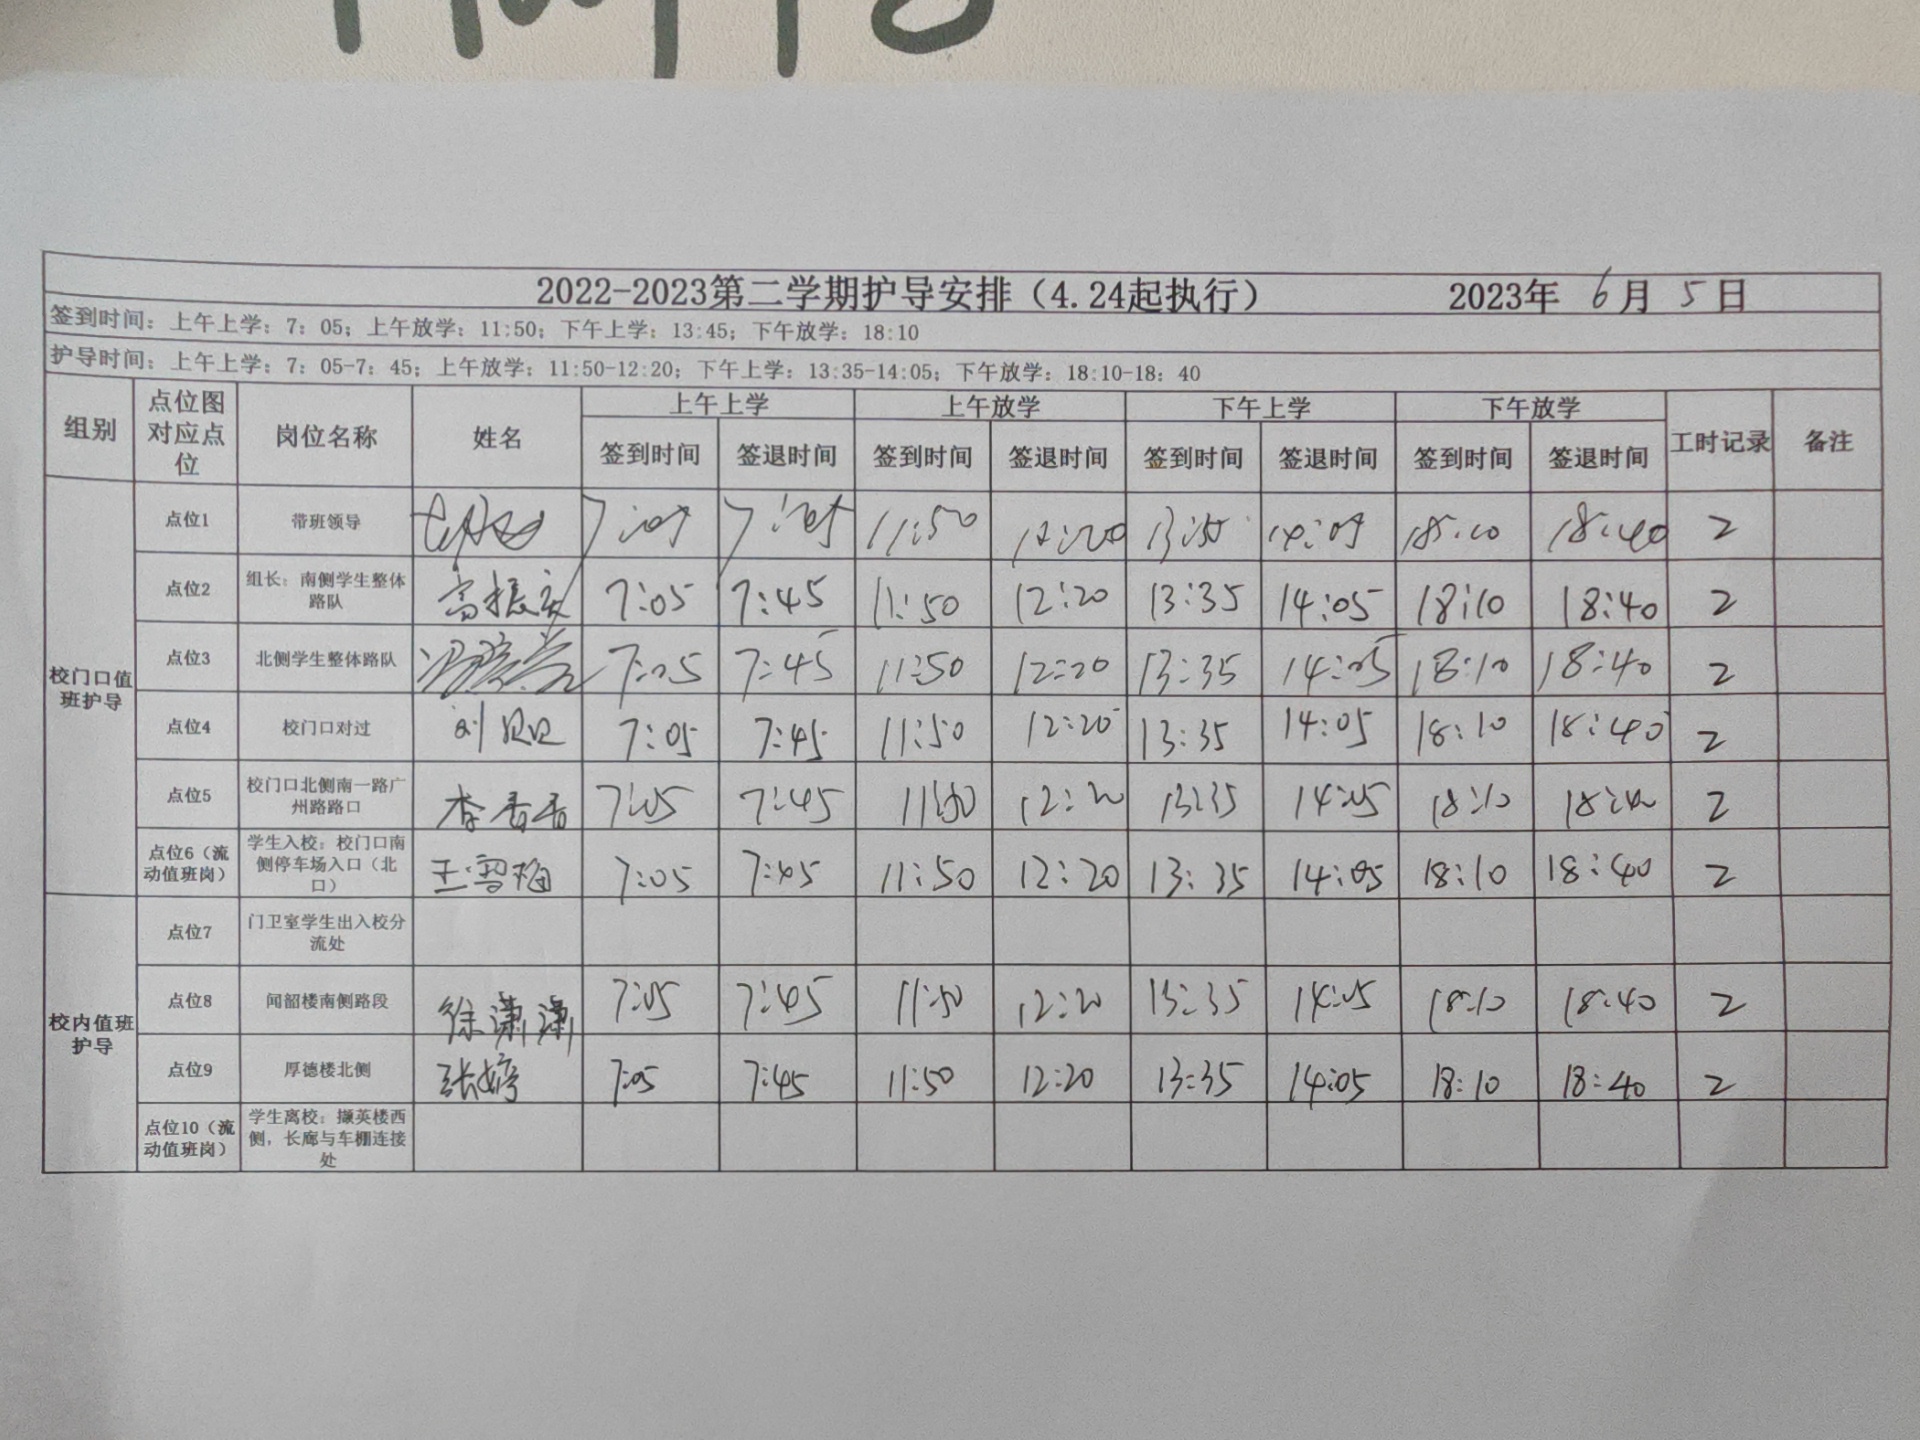 2022-2023第二学期护导安排（4.24起执行） 2023年 6月 5日
签到时间：上午上学：7：05；上午放学：11:50；下午上学：13:45；下午放学：18:10
护导时间：上午上学：7：05-7：45；上午放学：11:50-12:20；下午上学：13:35-14:05；下午放学：18:10-18：40
组别 点位图对应点位 岗位名称 姓名 上午上学 上午放学 下午上学 下午放学 工时记录 备注
签到时间 签退时间 签到时间 签退时间 签到时间 签退时间 签到时间 签退时间
校门口值班护导
点位1 带班领导 7:05 11:50 12:20 14:05 18:10 18:40 2
点位2 组长：南侧学生整体路队 高振 7:05 7:45 11:50 12:20 13:35 14:05 18:10 18:40 2
点位3 北侧学生整体路队 7:05 7:45 11:50 12:20 13:35 14:05 18:10 18:40 2
点位4 校门口对过 刘 7:05 7:45 11:50 12:20 13:35 14:05 18:10 18:40 2
点位5 校门口北侧南一路广州路路口 李香香 7:05 7:45 11:50 12:20 13:35 14:05 18:10 18:40 2
点位6（流动值班岗） 学生入校：校门口南侧停车场入口（北口） 王雪梅 7:05 7:45 11:50 12:20 13:35 14:05 18:10 18:40 2
校内值班护导
点位7 门卫室学生出入校分流处
点位8 闻韶楼南侧路段 徐潇潇 7:05 7:45 11:50 12:20 13:35 14:05 18:10 18:40 2
点位9 厚德楼北侧 张婷 7:05 7:45 11:50 12:20 13:35 14:05 18:10 18:40 2
点位10（流动值班岗） 学生离校：撷英楼西侧，长廊与车棚连接处